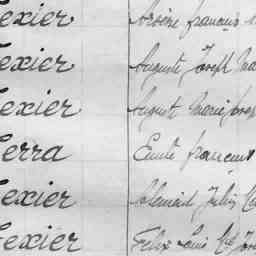 Texier Arsène françois
Texier Auguste Joseph Mar
Texier August Marie Josep
Terra Emile françois
Texier Clément Julien
Texier Felix Louis